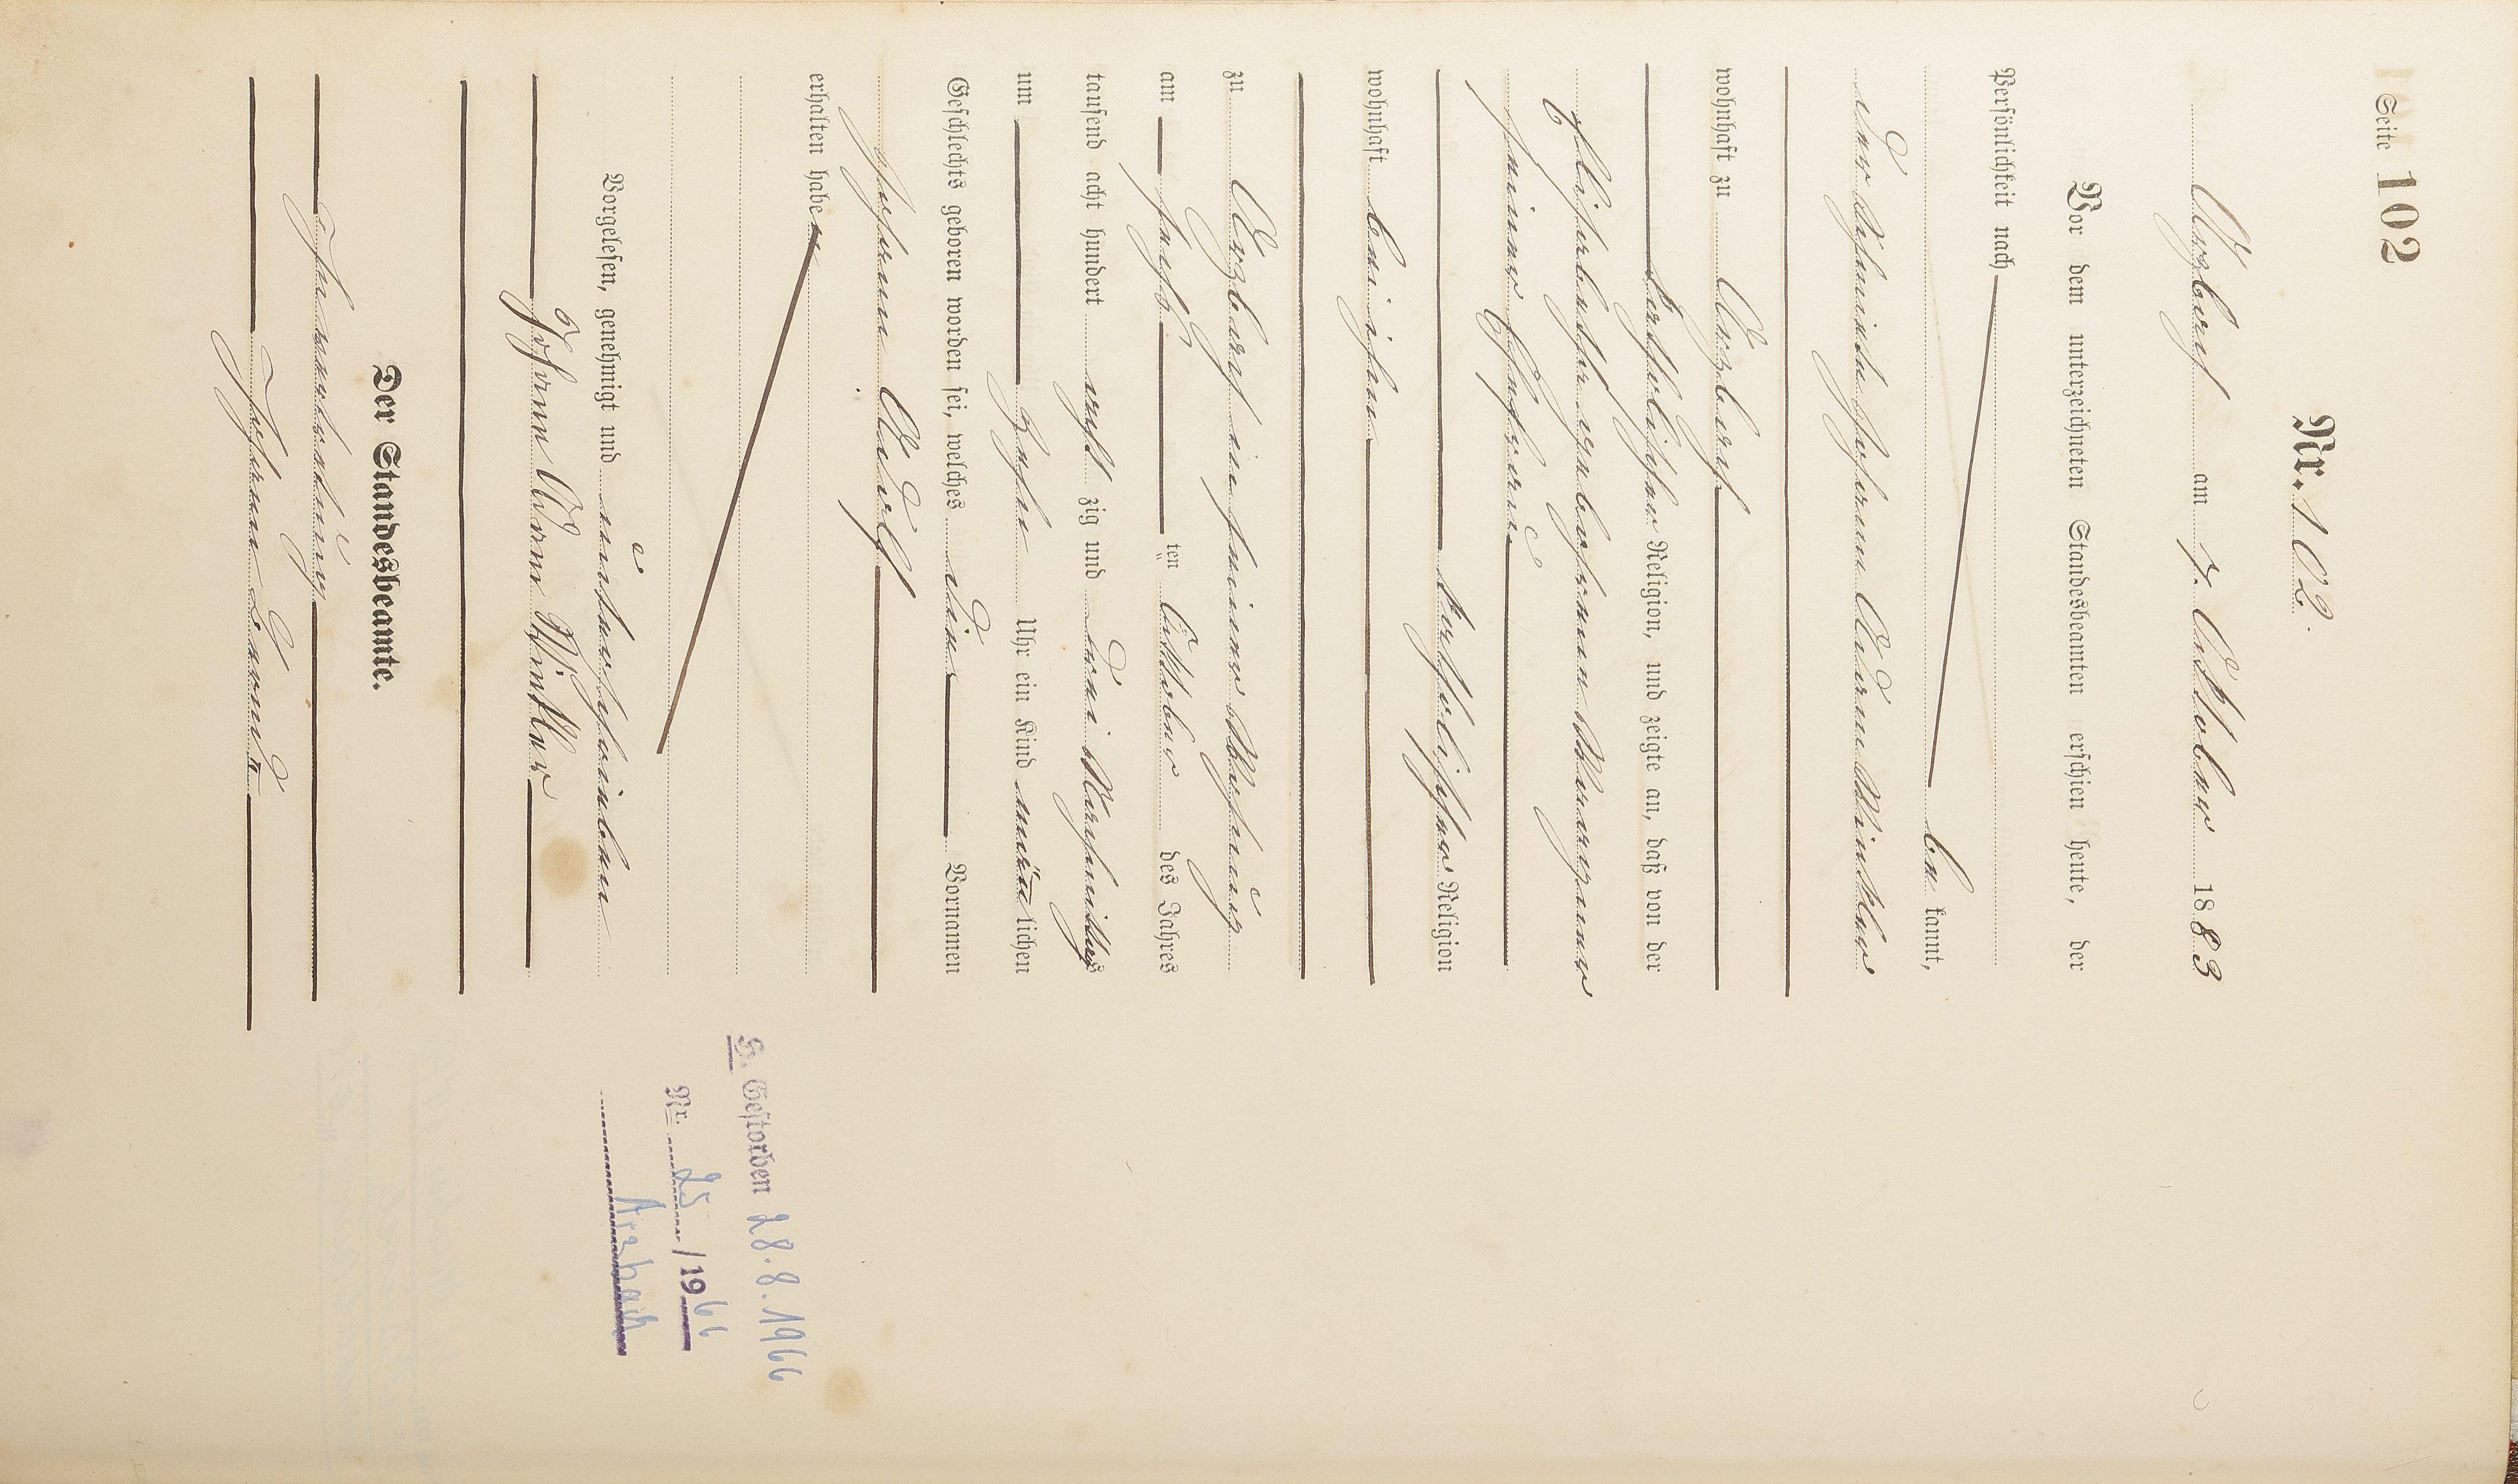 Seite 102
Nr. 102.
Arzbach am 7. Oktober 1883
Vor dem unterzeichneten Standesbeamten erschien heute, der
Persönlichkeit nach
be kannt,
der Johann Adam Winkler
wohnhaft zu Arzbach
katholischer Religion, und zeigte an, daß von der
Elisabetha geborenen
seiner Ehefrau
katholischer Religion
wohnhaft bei ihm
zu Arzbach in seiner Wohnung
am sechs ten Oktober des Jahres
tausend acht hundert acht zig und drei Vormittags
um zehn Uhr ein Kind männ lichen
Geschlechts geboren worden sei, welches die Vornamen
Johann Adolf
erhalten habe
Vorgelesen, genehmigt und unterschrieben
Johann Adam Winkler
Der Standesbeamte.
In Vertretung
Johann
H. Gestorben 28.8.1966
Nr. 25 / 1966
Arzbach